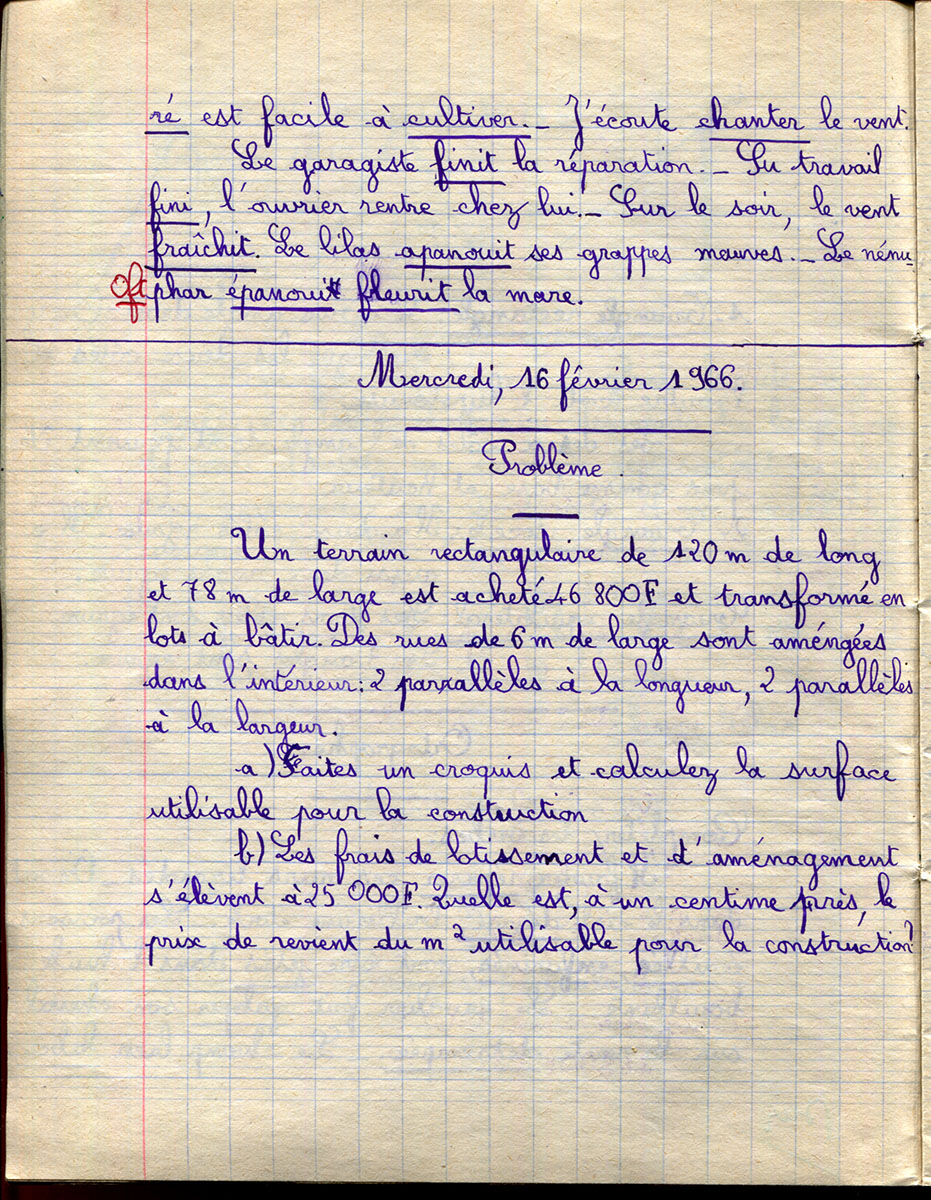 ré est facile à cultiver. _ J'écoute chanter le vent.
Le garagiste finit la réparation. _ Su travail
fini, l'ouvrier rentre chez lui. _ Sur le soir, le vent
fraîchit. Le lilas apanouit ses grappes mauves. _ Le nénu
phar épanouit fleurit la mare.
Mercredi, 16 février 1966.
Problème.
Un terrain rectangulaire de 120 m de long
et 78 m de large est acheté 46 800F et transformé en
lots à bâtir. Des rues de 6 m de large sont améngées
dans l'intérieur: 2 parrallèles à la longueur, 2 parallèles
à la largeur.
a) Faites un croquis et calculez la surface
utilisable pour la construction
b) Les frais de lotissement et d'aménagement
s'élèvent à 25 000F. Quelle est, à un centime près, le
prix de revient du m² utilisable pour la construction?